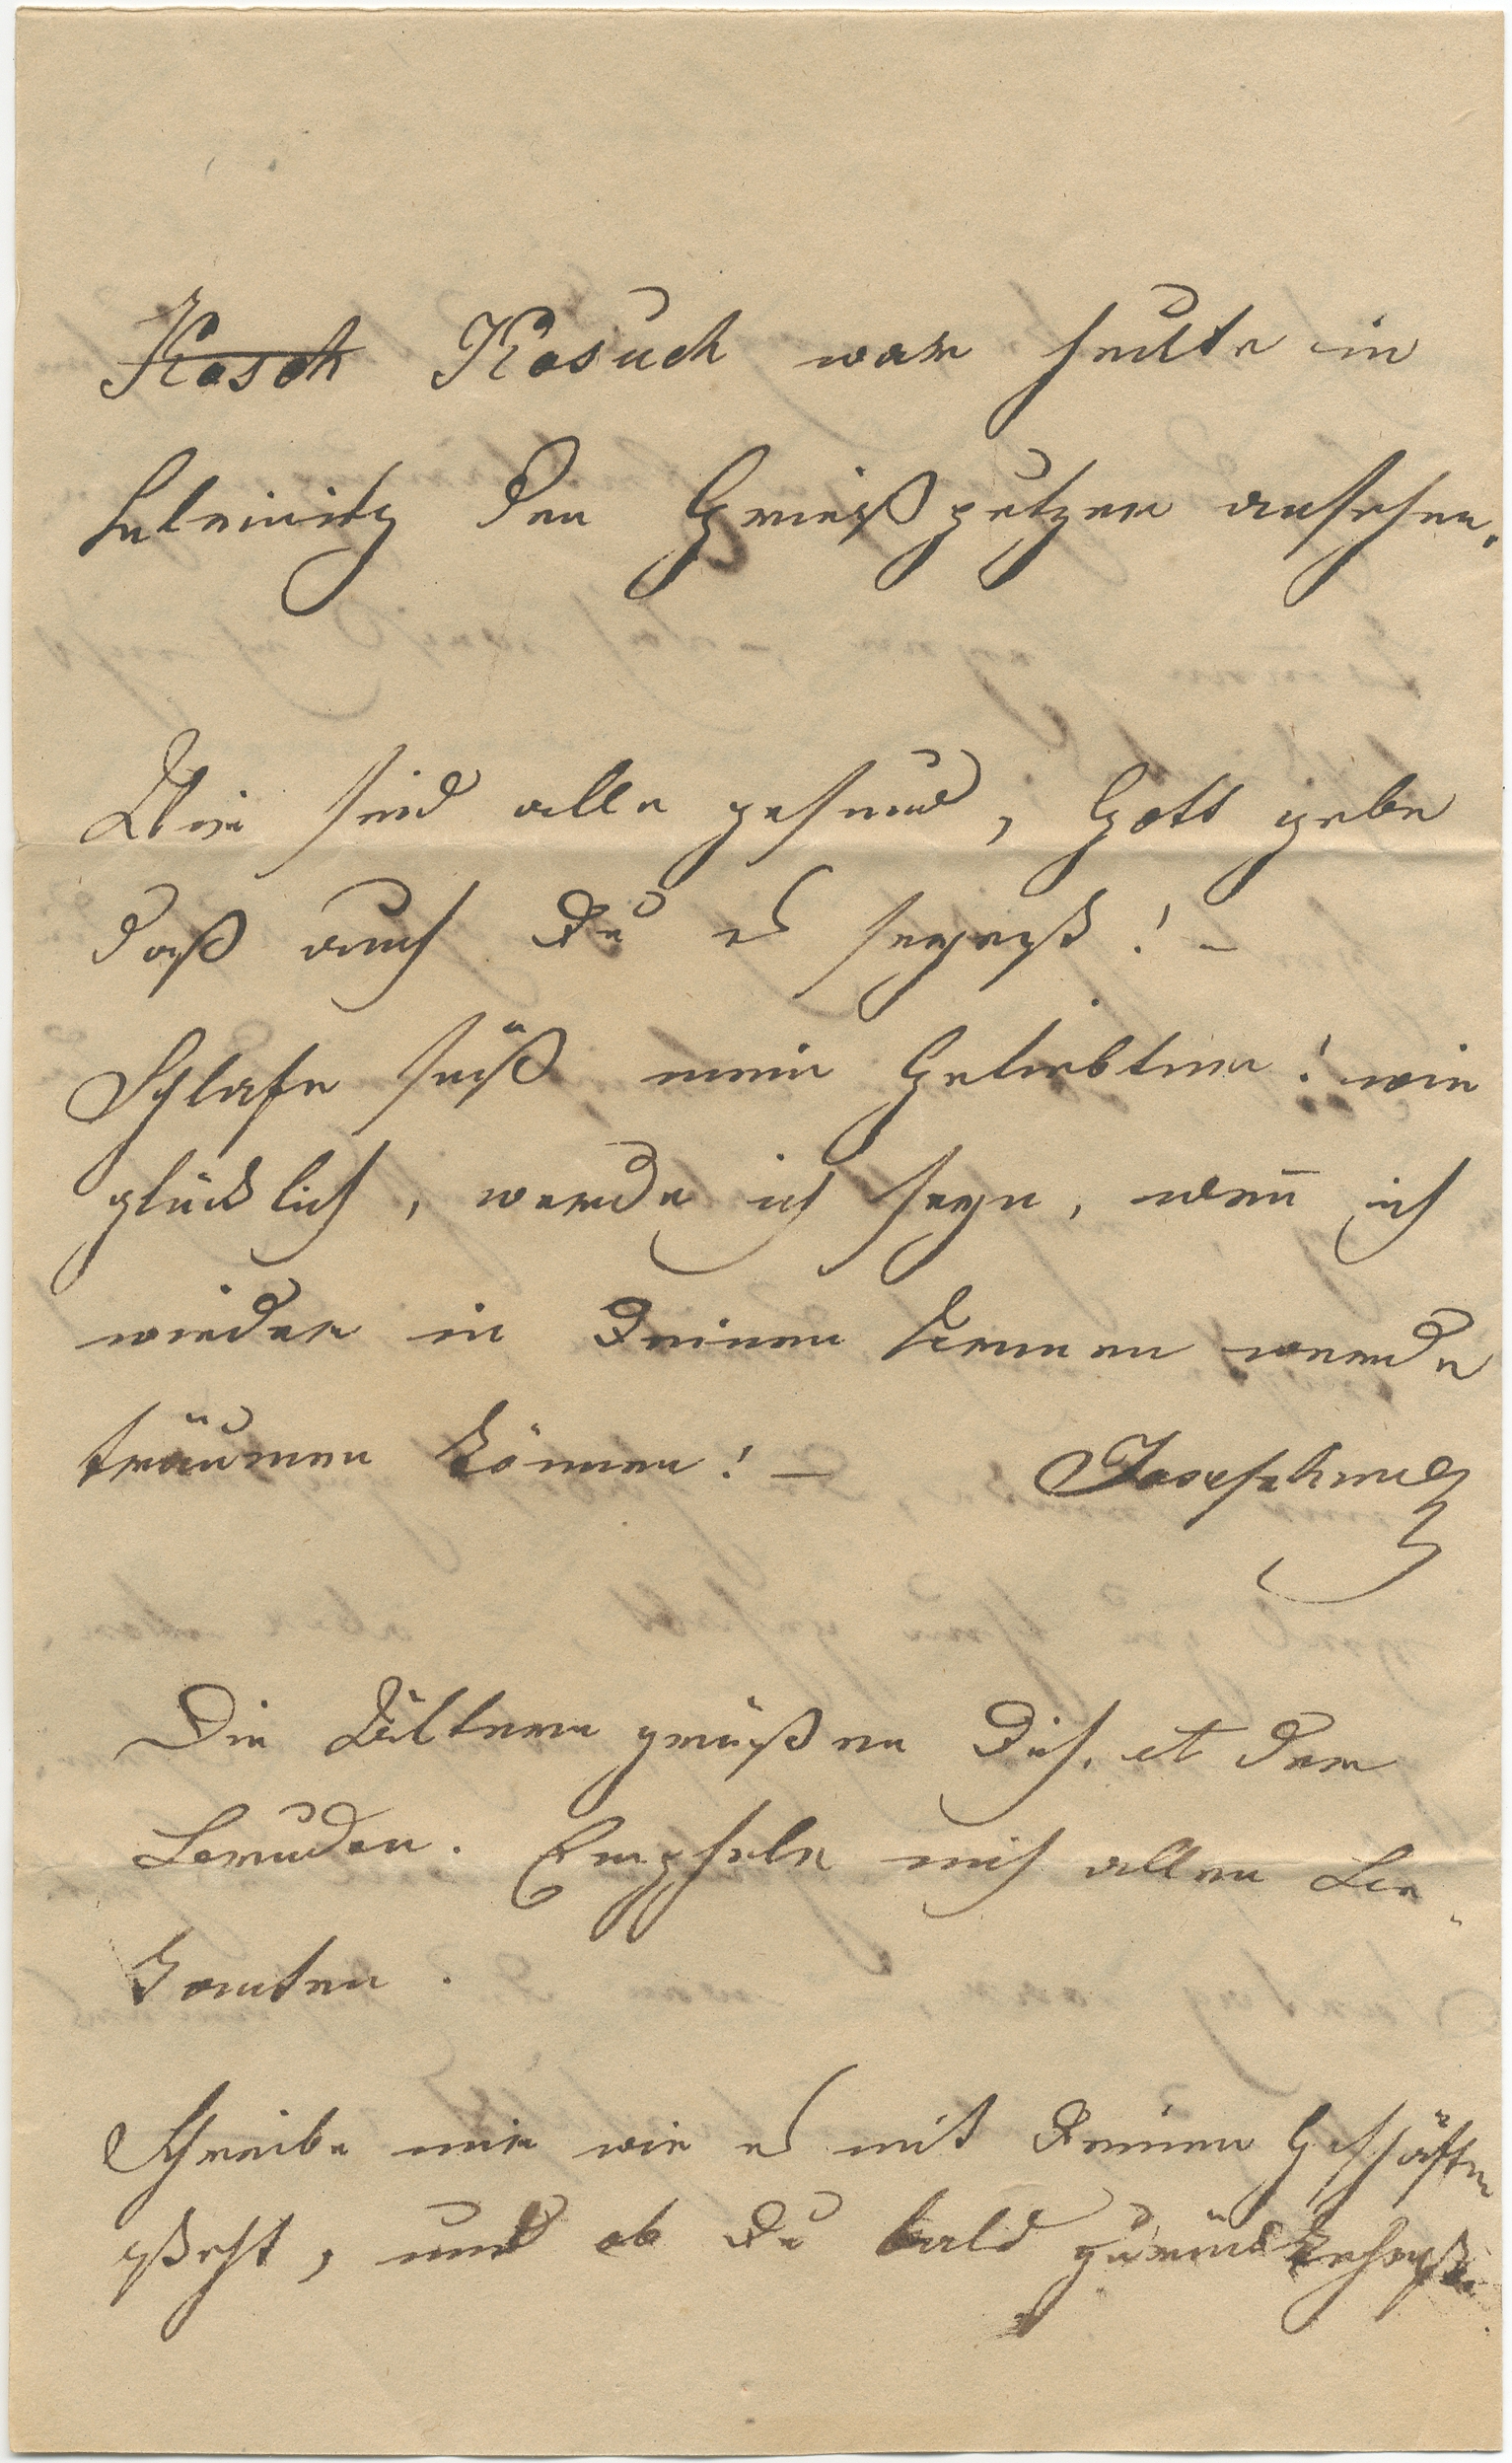 Kosch Kosuch war heute in
den Grießputzer ansehen.
Wir sind alle gesund, Gott gebe
daß auch Du es seyest! –
Schlafe süß mein Geliebter! wie
glücklich, werde ich seyn, wen̄ ich
wieder in Deinen Armen werde
träumen können! –
Die Ältern grüßen Dich, et den
Bruder. Empfele mich allen Be„
kanten.
Schreibe mir wie es mit Deinen Geschäften
steht, und ob Du bald zurückkehrst.